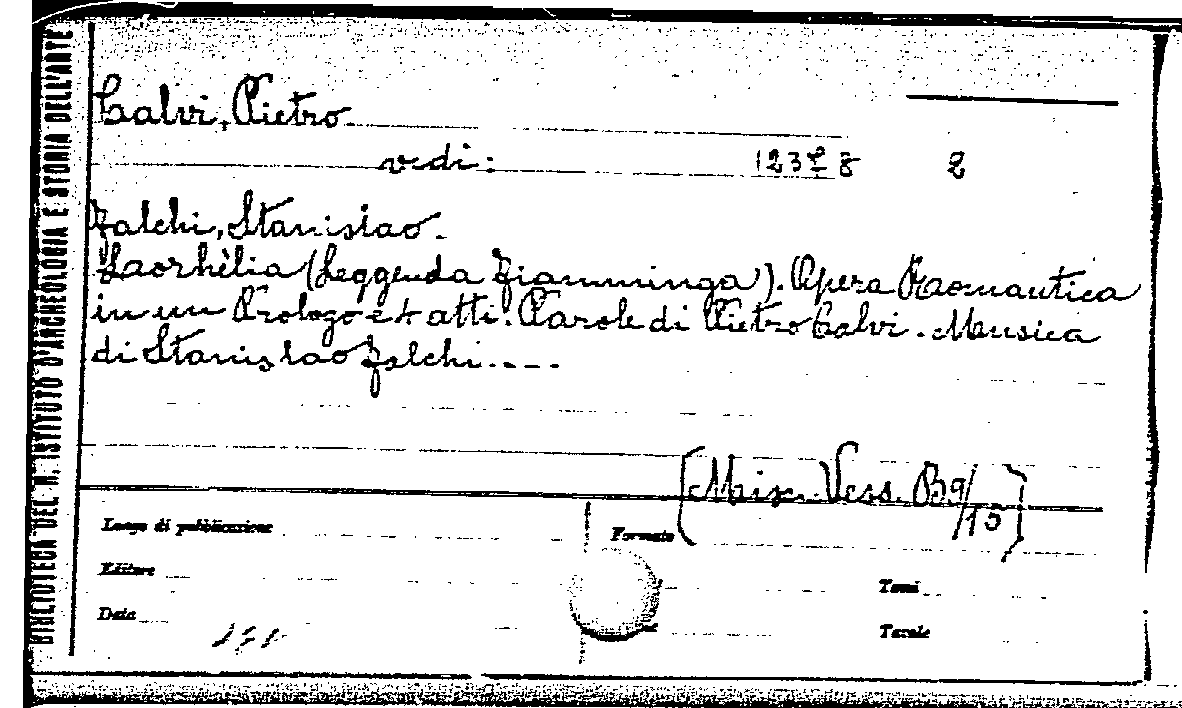 BIBLIOTECA DEL R. ISTITUTO D'ARCHEOLOGIA E STORIA DELL'ARTE
Calvi, Pietro
vedi: 8 2
Falchi, Stanislao.
(Leggenda Fiamminga). Opera Romantica
in un Prologo e 4 atti. Parole di Pietro Calvi. Musica
di Stanislao Falchi....
[Misc. Vess. B9/15]
Luogo di pubblicazione Formato
Editore Tomi
Data Tavole